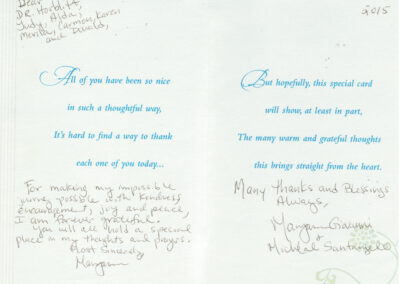 Dear
Dr. Horbitt,
Judy, Alda,
Monica, Carmen, Karen
and Donald,
All of you have been so nice
in such a thoughtful way,
It's hard to find a way to thank
each one of you today...
For making my impossible
journey possible with kindness
encouragement, joy and peace,
I am forever grateful.
You will all hold a special
place in my thoughts and prayers.
Most Sincerely
Maryann
2015
But hopefully, this special card
will show, at least in part,
The many warm and grateful thoughts
this brings straight from the heart.
Many Thanks and Blessings
Always,
Maryann
+
Michael Santangelo